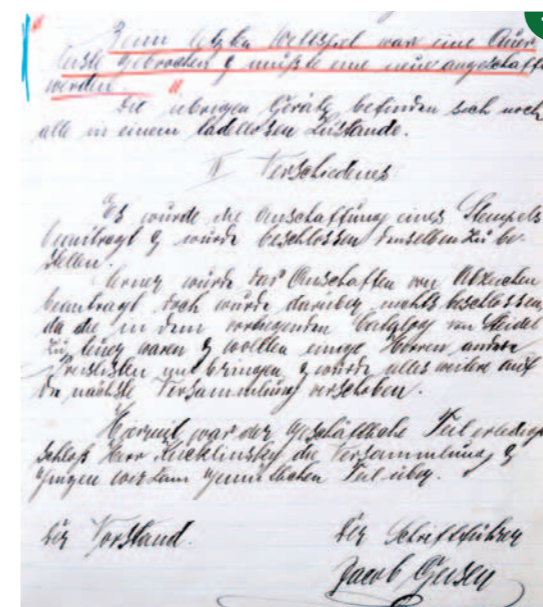 Beim letzten Wettspiel war eine Quer-
leiste gebrochen & mußte eine neue angeschafft
werden.
Die übrigen Geräte befinden sich noch
alle in einem tadellosen Zustande.
II Verschiedenes
Es wurde die Anschaffung eines Stempels
beantragt & wurde beschlossen denselben zu be-
stellen.
Ferner wurde das Anschaffen von Abzeichen
beantragt doch wurde darüber nichts beschlossen,
da die in dem vorliegenden Catalog von
zu teuer waren & wollten einige Herren andere
Preislisten mitbringen & wurde alles weitere auf
die nächste Versammlung verschoben.
Hiermit war der geschäftliche Teil erledigt
schloß Herr die Versammlung &
gingen wir zum gemütlichen Teil über.
Der Vorstand. Der Schriftführer
Jacob